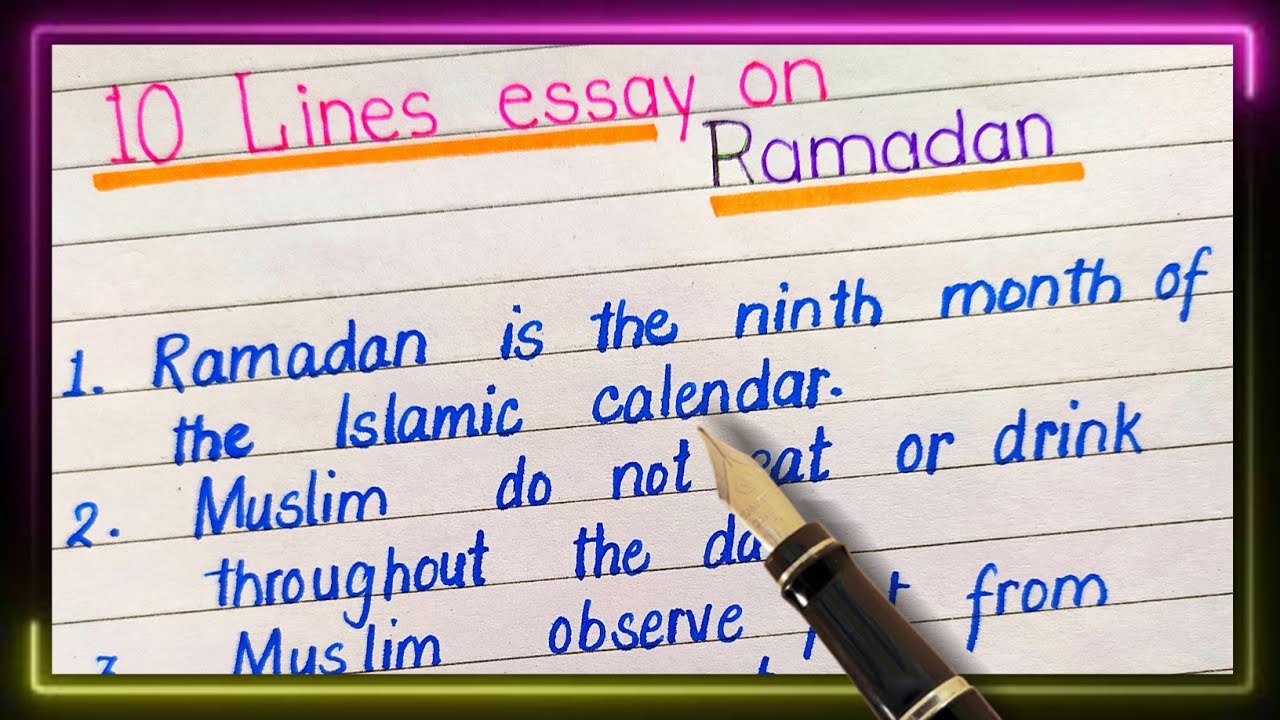 10 Lines essay on
Ramadan
1. Ramadan is the ninth month of
the Islamic calendar.
2. Muslim do not eat or drink
throughout the
Muslim observe from